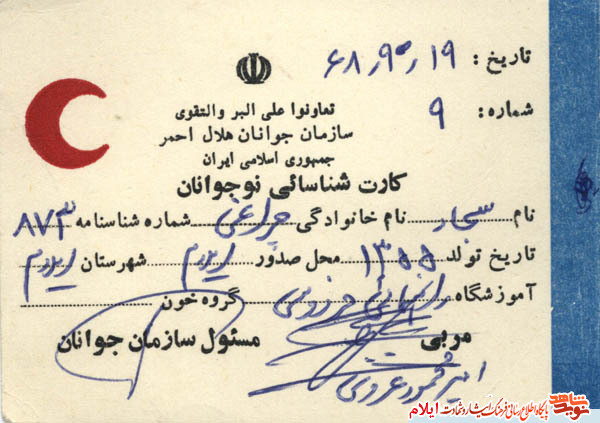 تاریخ: ۶۸٫۹٫۱۹
شماره: ۹
تعاونوا علی البر والتقوی
سازمان جوانان هلال احمر
جمهوری اسلامی ایران
کارت شناسائی نوجوانان
نام سجاد نام خانوادگی چراغی شماره شناسنامه ۸۷۳
تاریخ تولد ۱۳۵۵ محل صدور ایلام شهرستان ایلام
آموزشگاه راهنمائی گروه خون
مربی مسئول سازمان جوانان
شاهد نوید پایگاه اطلاع رسانی فرهنگ ایثار و شهادت ایلام